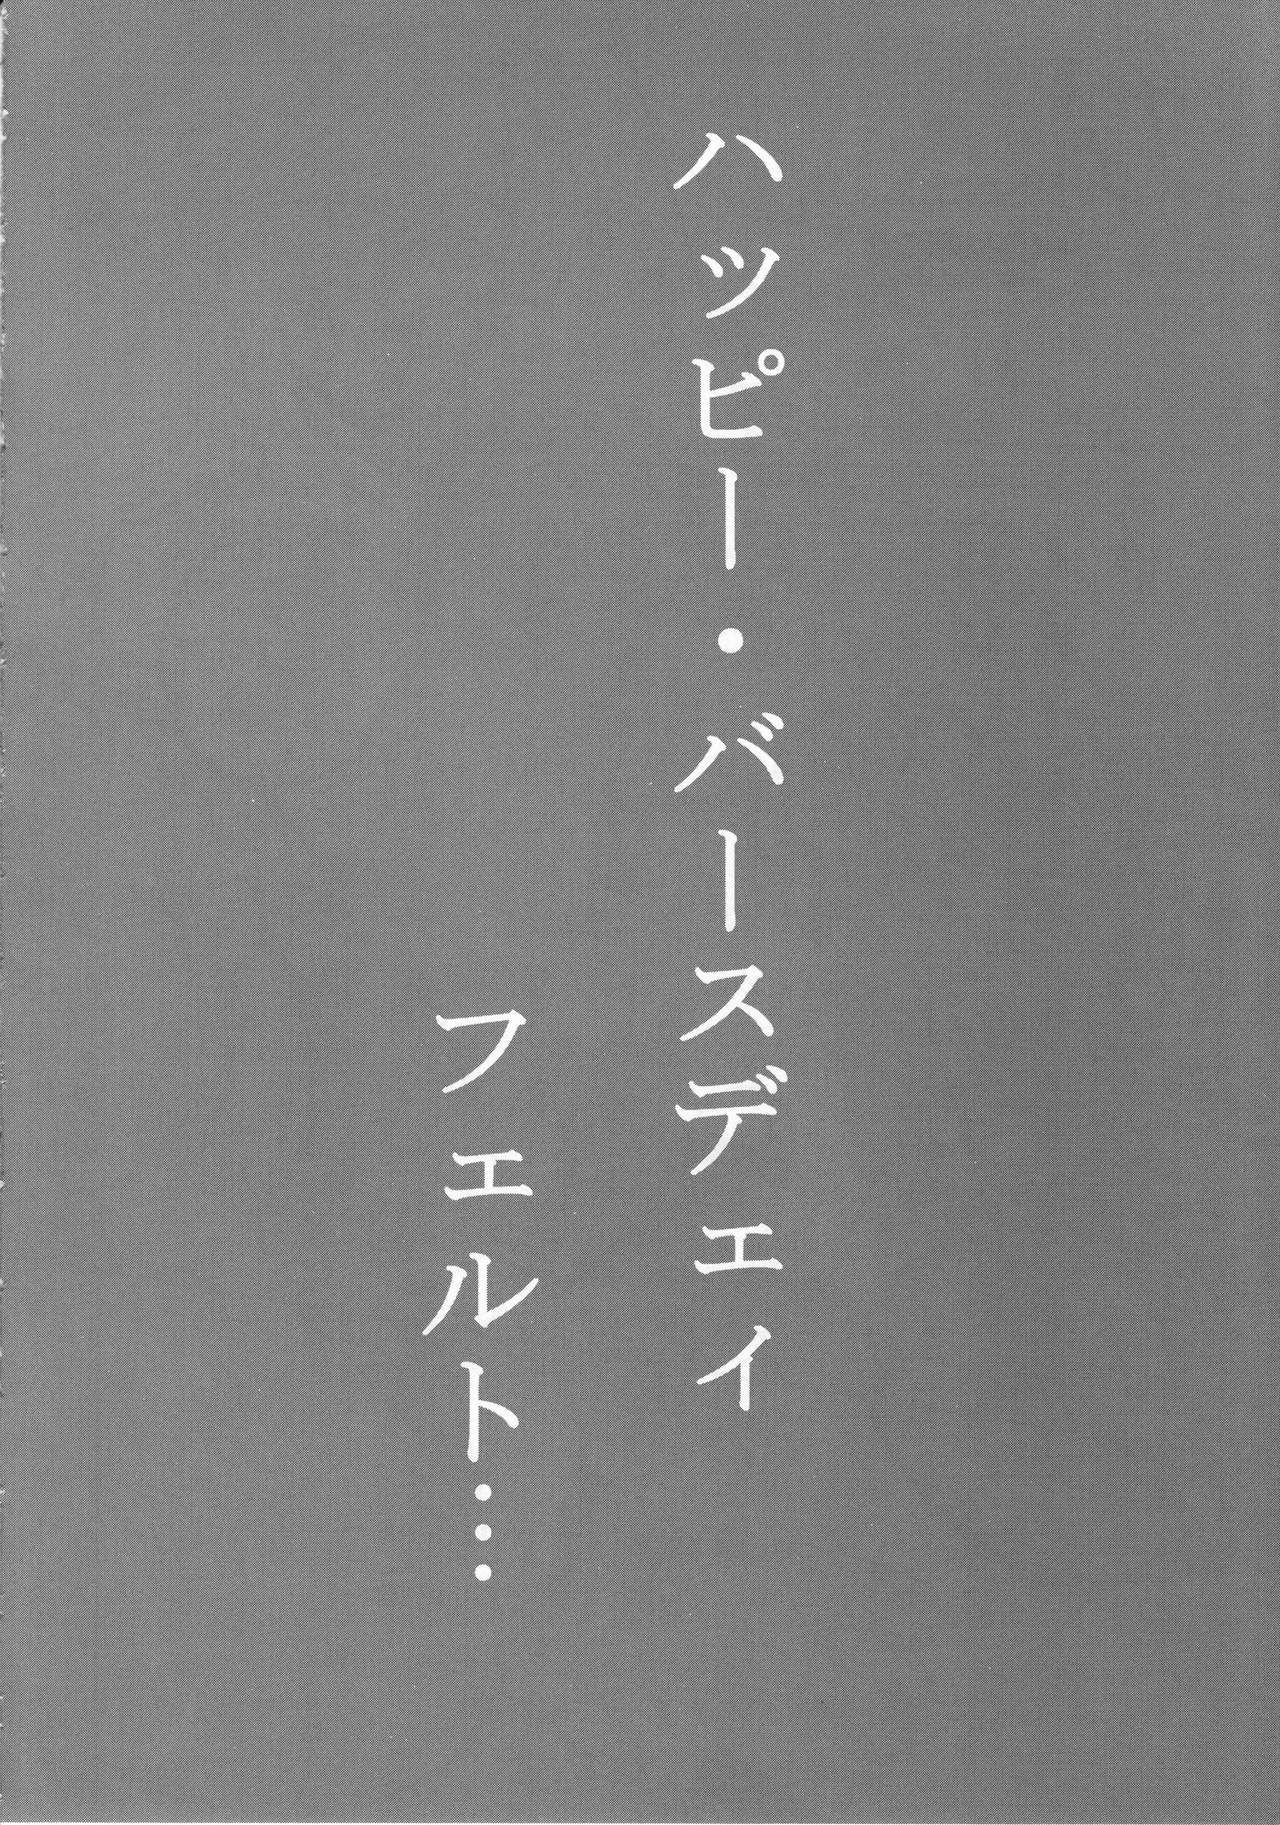 ハッピー・バースデェィ
フェルト…